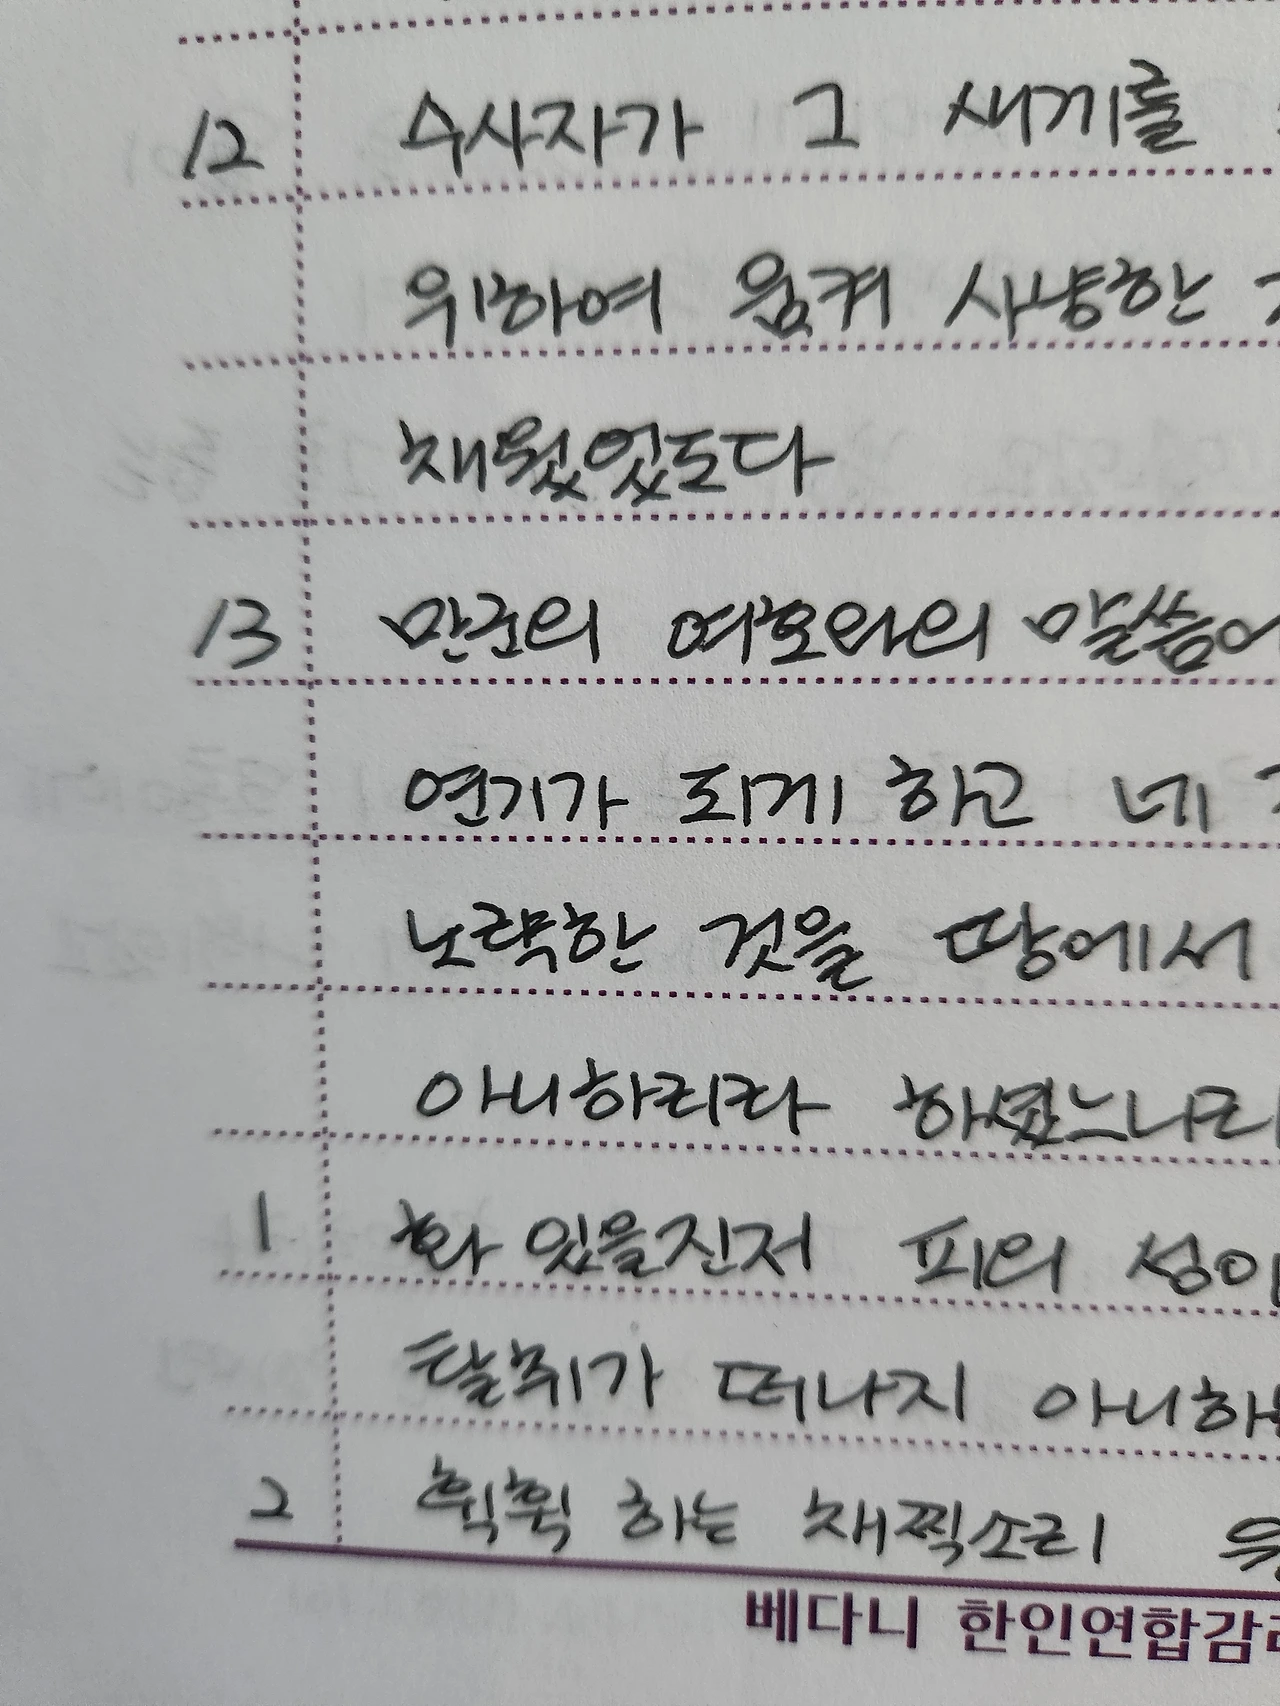 12 수사자가 그 새끼를
위하여 움켜 사냥한
채웠었도다
13 만군의 여호와의 말씀에
연기가 되게 하고 네
노략한 것을 땅에서
아니하리라 하셨느니라
1 화 있을진저 피의 성이
탈취가 떠나지 아니하
2 휙휙 하는 채찍소리
베다니 한인연합감리